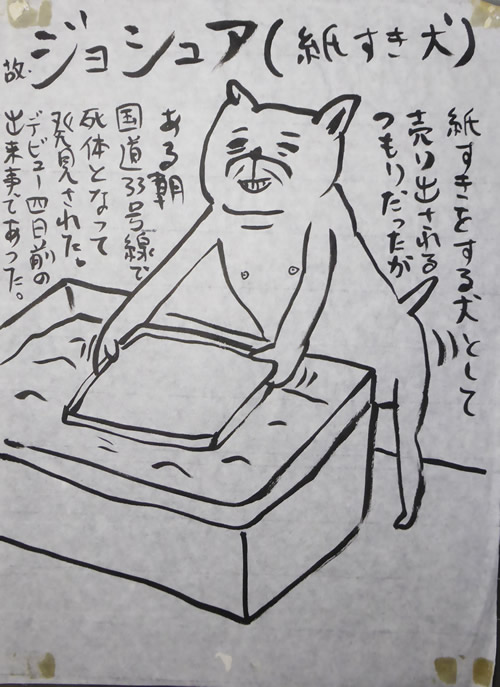 故.ジョシュア(紙すき犬)
紙すきをする犬として
売り出される
つもりだったが
ある朝
国道33号線で
死体となって
発見された。
デビュー四日前の
出来事であった。